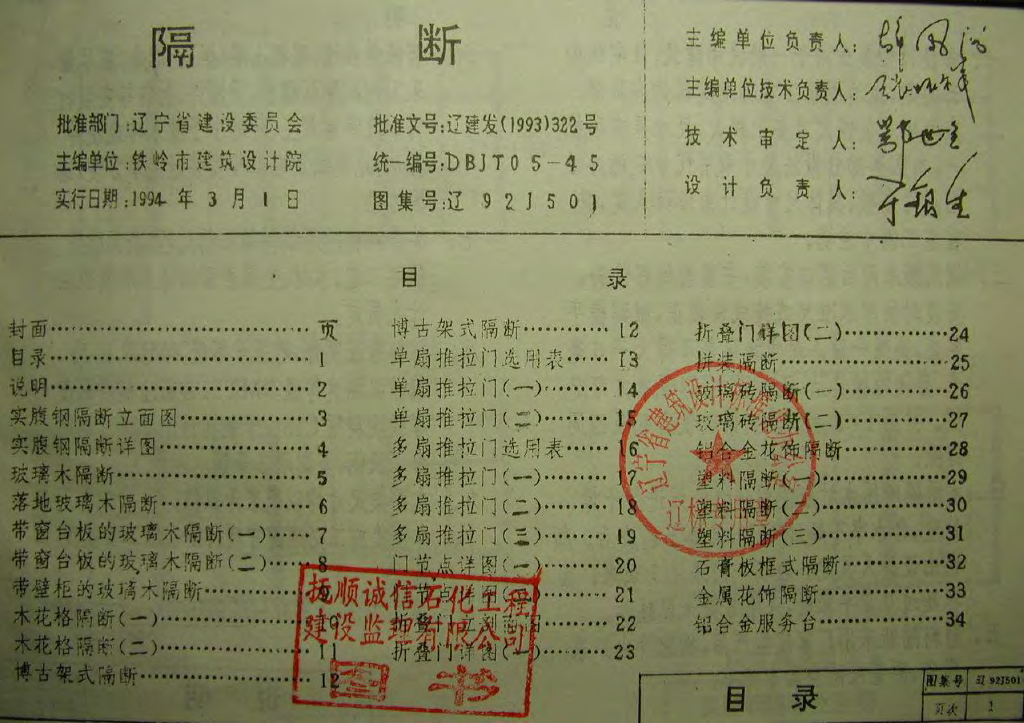 隔 断
批准部门:辽宁省建设委员会
主编单位:铁岭市建筑设计院
实行日期:1994年3月1日
批准文号:辽建发(1993)322号
统一编号:DBJT05-45
图集号:辽92J501
主编单位负责人:
主编单位技术负责人:
技术审定人:
设计负责人:
目 录
封面……页
目录……1
说明……2
实腹钢隔断立面图……3
实腹钢隔断详图……4
玻璃木隔断……5
落地玻璃木隔断……6
带窗台板的玻璃木隔断(一)……7
带窗台板的玻璃木隔断(二)……8
带壁柜的玻璃木隔断……9
木花格隔断(一)……10
木花格隔断(二)……11
博古架式隔断……12
博古架式隔断……12
单扇推拉门选用表……13
单扇推拉门(一)……14
单扇推拉门(二)……15
多扇推拉门选用表……16
多扇推拉门(一)……17
多扇推拉门(二)……18
多扇推拉门(三)……19
门节点详图(一)……20
节点……21
折叠门立剖面图……22
折叠门详图(一)……23
折叠门详图(二)……24
拼装隔断……25
玻璃砖隔断(一)……26
玻璃砖隔断(二)……27
铝合金花饰隔断……28
塑料隔断(一)……29
塑料隔断(二)……30
塑料隔断(三)……31
石膏板框式隔断……32
金属花饰隔断……33
铝合金服务台……34
辽宁省建筑设计
抚顺诚信石化工程
建设监理有限公司
图书
目 录
图集号 辽92J501
页次 1